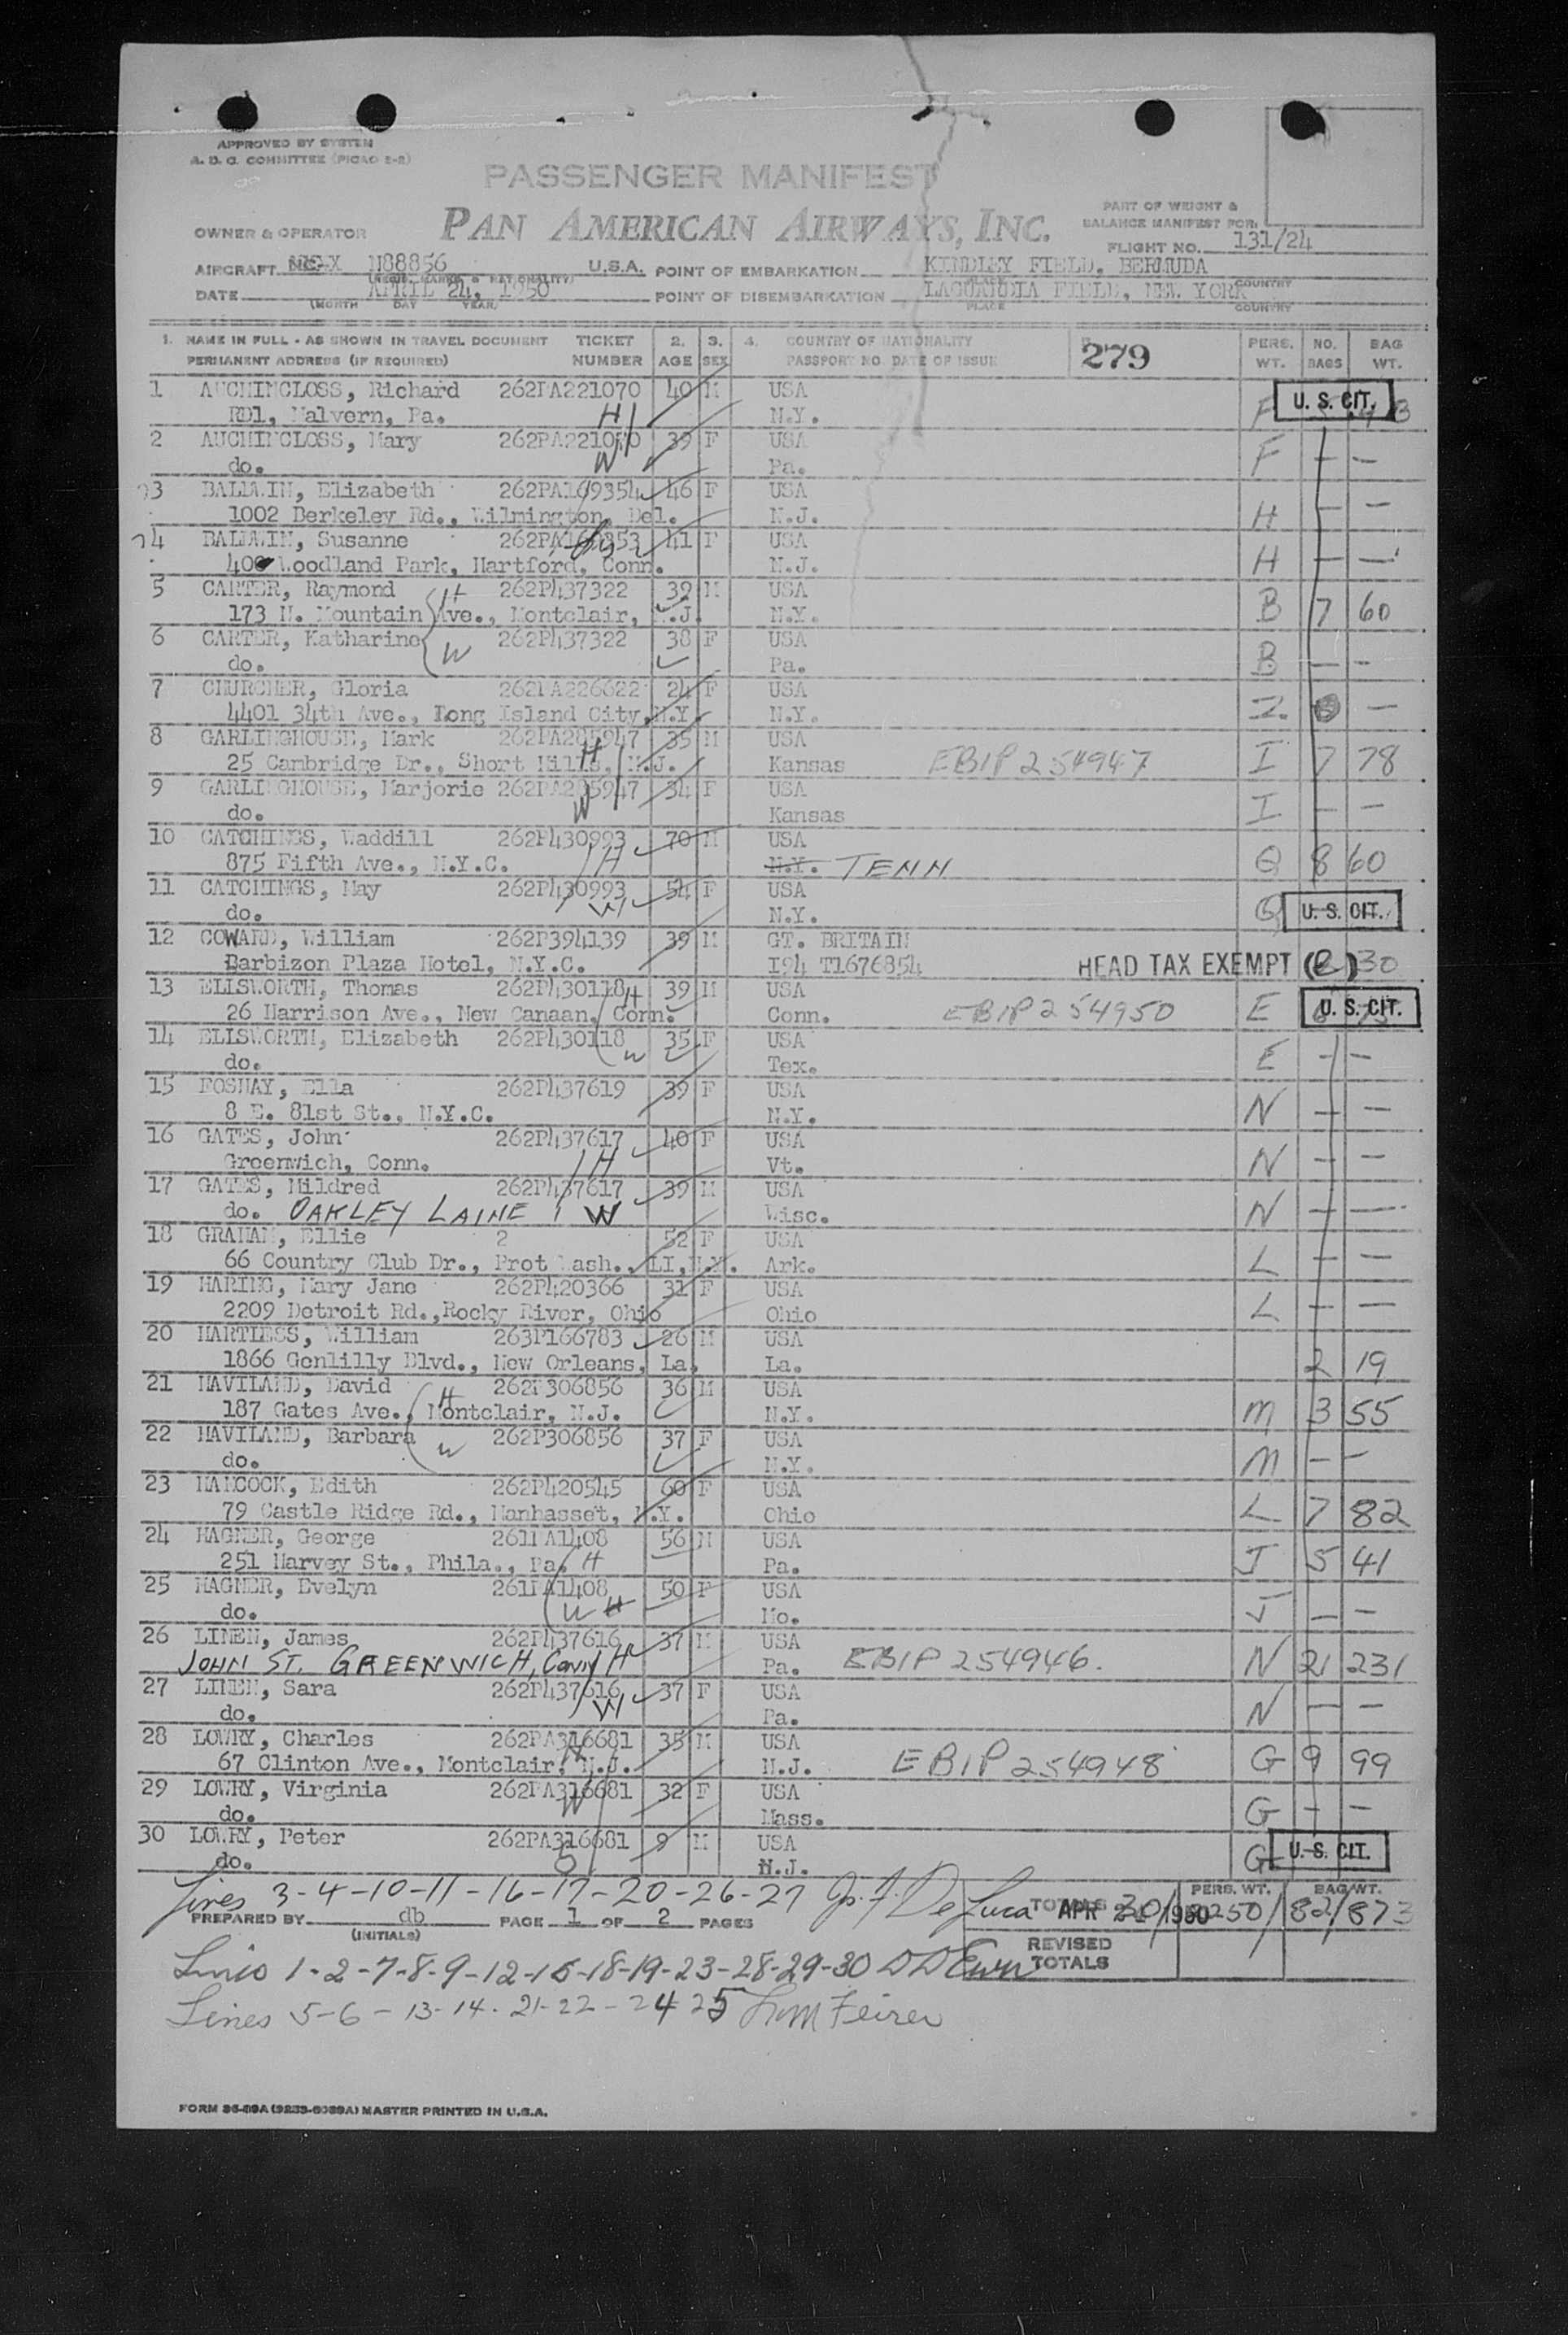 APPROVED BY SYSTEM
A. D. C. COMMITTEE (PICAO 2-2)
PASSENGER MANIFEST
PAN AMERICAN AIRWAYS, INC.
PART OF WEIGHT &
BALANCE MANIFEST FOR:
OWNER & OPERATOR
FLIGHT NO. 131/24
AIRCRAFT N88856 U.S.A. POINT OF EMBARKATION KINDLEY FIELD, BERMUDA
DATE APRIL 24, 1950 POINT OF DISEMBARKATION LAGUARDIA FIELD, NEW YORK
(MONTH DAY YEAR) PLACE COUNTRY
1. NAME IN FULL - AS SHOWN IN TRAVEL DOCUMENT TICKET 2. 3. 4. COUNTRY OF NATIONALITY 279 PERS. NO. BAG
PERMANENT ADDRESS (IF REQUIRED) NUMBER AGE SEX PASSPORT NO DATE OF ISSUE WT. BAGS WT.
1 AUCHINCLOSS, Richard 262PA221070 40 M USA U. S. CIT.
RD1, Malvern, Pa. H N.Y. F
2 AUCHINCLOSS, Mary 262PA221070 39 F USA
do. W Pa. F — —
3 BALDWIN, Elizabeth 262PA169354 46 F USA
1002 Berkeley Rd., Wilmington, Del. N.J. H — —
4 BALDWIN, Susanne 41 F USA
400 Woodland Park, Hartford, Conn. N.J. H — —
5 CARTER, Raymond H 262P437322 39 M USA
173 N. Mountain Ave., Montclair, N.J. N.Y. B 7 60
6 CARTER, Katharine W 262P437322 38 F USA
do. Pa. B — —
7 CHURCHER, Gloria 262PA226622 24 F USA
4401 34th Ave., Long Island City, N.Y. N.Y. —
8 GARLINGHOUSE, Mark 35 M USA
25 Cambridge Dr., Short Hills, N.J. H Kansas EBIP 254947 I 7 78
9 GARLINGHOUSE, Marjorie 262PA205947 34 F USA
do. W Kansas I — —
10 CATCHINGS, Waddill 262P430993 70 M USA
875 Fifth Ave., N.Y.C. H N.Y. TENN Q 8 60
11 CATCHINGS, May 262P430993 54 F USA
do. W N.Y. Q U. S. CIT.
12 COWARD, William 262P394139 39 M GT. BRITAIN
Barbizon Plaza Hotel, N.Y.C. I94 T1676854 HEAD TAX EXEMPT (2) 30
13 ELLSWORTH, Thomas 262P430118 H 39 M USA
26 Harrison Ave., New Canaan, Conn. Conn. EBIP 254950 E U. S. CIT.
14 ELLSWORTH, Elizabeth 262P430118 W 35 F USA
do. Tex. E — —
15 FOSHAY, Ella 262P437619 39 F USA
8 E. 81st St., N.Y.C. N.Y. N — —
16 GATES, John 262P437617 40 F USA
Greenwich, Conn. H Vt. N — —
17 GATES, Mildred 262P437617 39 M USA
do. OAKLEY LAINE W Wisc. N — —
18 GRAHAM, Ellie 2 52 F USA
66 Country Club Dr., Prot Wash., LI, N.Y. Ark. L — —
19 HARING, Mary Jane 262P420366 31 F USA
2209 Detroit Rd.,Rocky River, Ohio Ohio L — —
20 HARTLESS, William 263P166783 26 M USA
1866 Genlilly Blvd., New Orleans, La. La. 2 19
21 HAVILAND, David H 262P306856 36 M USA
187 Gates Ave., Montclair, N.J. N.Y. M 3 55
22 HAVILAND, Barbara W 262P306856 37 F USA
do. N.Y. M — —
23 HANCOCK, Edith 262P420545 60 F USA
79 Castle Ridge Rd., Manhasset, N.Y. Ohio L 7 82
24 HAGNER, George 261PA1408 56 M USA
251 Harvey St., Phila., Pa. H Pa. J 5 41
25 HAGNER, Evelyn 261PA1408 50 F USA
do. W H Mo. J — —
26 LINEN, James 262P437616 37 M USA
JOHN ST. GREENWICH, Conn H Pa. EBIP 254946. N 21 231
27 LINEN, Sara 262P437616 37 F USA
do. W Pa. N — —
28 LOWRY, Charles 262PA316681 35 M USA
67 Clinton Ave., Montclair, N.J. H N.J. EBIP 254948 G 9 99
29 LOWRY, Virginia 262PA316681 32 F USA
do. W Mass. G — —
30 LOWRY, Peter 262PA316681 9 M USA
do. N.J. G U. S. CIT.
Lines 3-4-10-11-16-17-20-26-27 De Luca TOTALS 30 APR 24 1950 PERS. WT. BAG WT. 82/873
PREPARED BY db PAGE 1 OF 2 PAGES
(INITIALS) REVISED
TOTALS
Lines 1-2-7-8-9-12-15-18-19-23-28-29-30
Lines 5-6-13-14-21-22-24 25
FORM 36-89A (9233-6089A) MASTER PRINTED IN U.S.A.